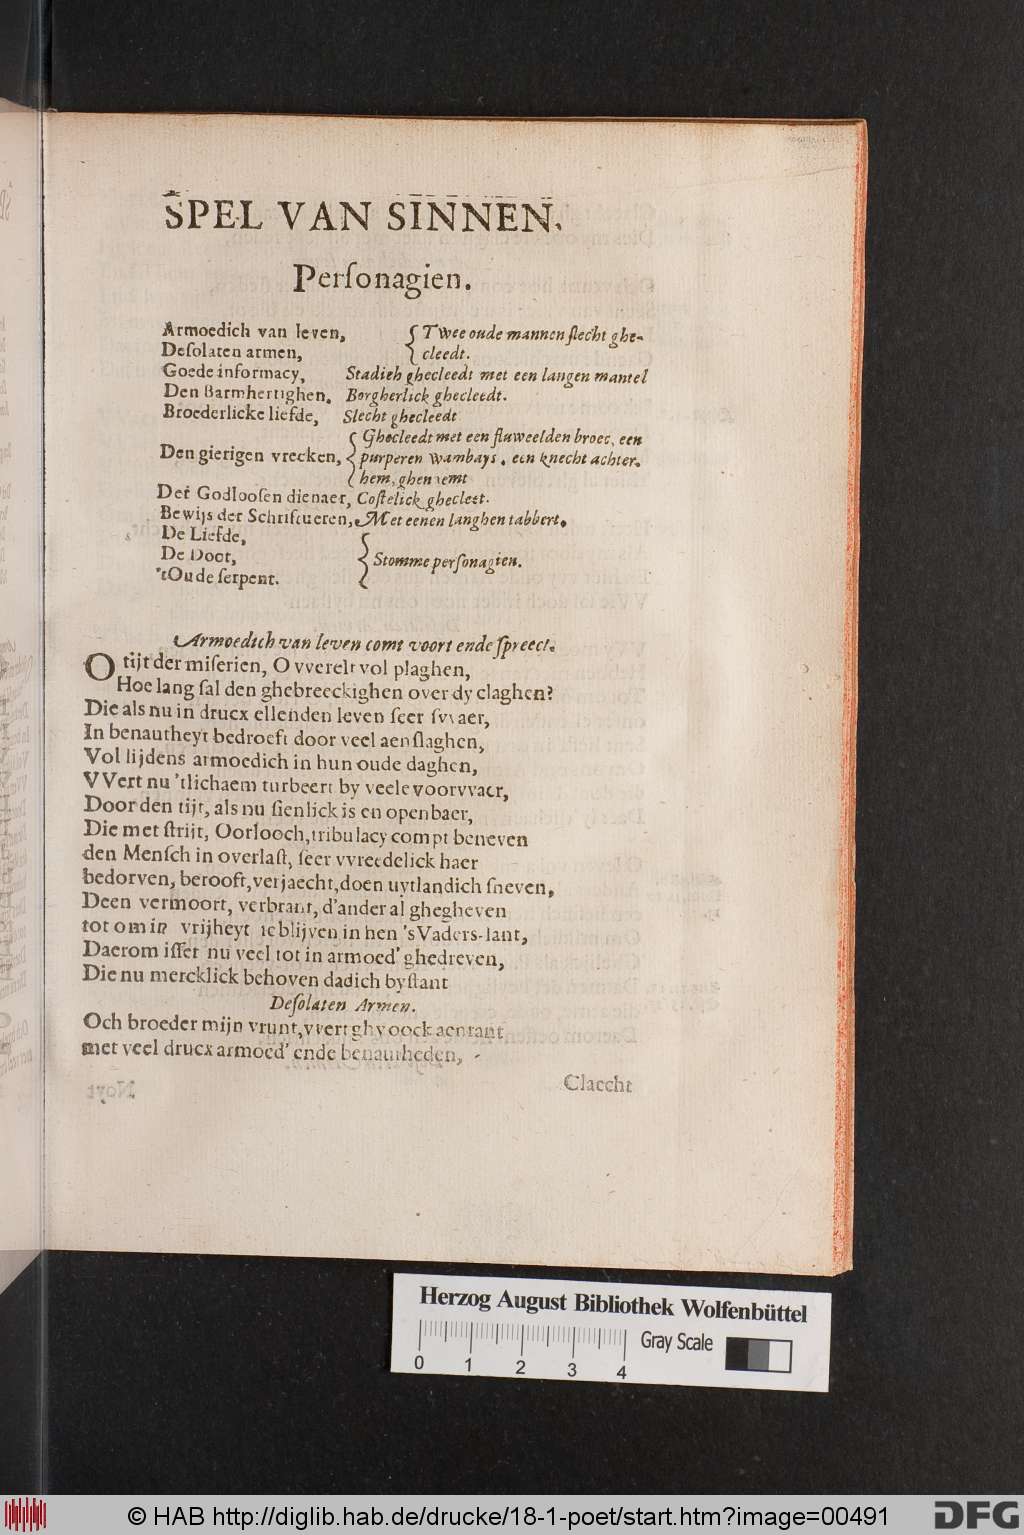 SPEL VAN SINNEN.
Perſonagien.
Armoedich van leven, { Twee oude mannen ſlecht ghe-
Deſolaten armen, { cleedt.
Goede informacy, Stadich ghecleedt met een langen mantel
Den Barmhertighen, Borgherlick ghecleedt.
Broederlicke liefde, Slecht ghecleedt
Den gierigen vrecken, { Ghecleedt met een fluweelden broec, een
purperen wambays, een knecht achter
hem, ghenaemt
Der Godlooſen dienaer, Coſtelick ghecleet.
Bewijs der Schriftueren, Met eenen langhen tabbert.
De Liefde,
De Doot, { Stomme perſonagien.
'tOude ſerpent.
Armoedich van leven comt voort ende ſpreect.
O tijt der miſerien, O vverelt vol plaghen,
Hoe lang ſal den ghebreeckighen over dy claghen?
Die als nu in drucx ellenden leven ſeer ſvvaer,
In benautheyt bedroeft door veel aenſlaghen,
Vol lijdens armoedich in hun oude daghen,
VVert nu 'tlichaem turbeert by veele voorvvaer,
Door den tijt, als nu ſienlick is en openbaer,
Die met ſtrijt, Oorlooch, tribulacy compt beneven
den Menſch in overlaſt, ſeer vvreedelick haer
bedorven, berooft, verjaecht, doen uytlandich ſneven,
Deen vermoort, verbrant, d'ander al ghegheven
tot om in vrijheyt te blijven in hen 'sVaders-lant,
Daerom iſſet nu veel tot in armoed' ghedreven,
Die nu mercklick behoven dadich byſtant
Deſolaten Armen.
Och broeder mijn vrunt, vvert ghy oock aenrant
met veel drucx armoed' ende benautheden,
Claecht
Herzog August Bibliothek Wolfenbüttel
Gray Scale
0 1 2 3 4
© HAB http://diglib.hab.de/drucke/18-1-poet/start.htm?image=00491
DFG